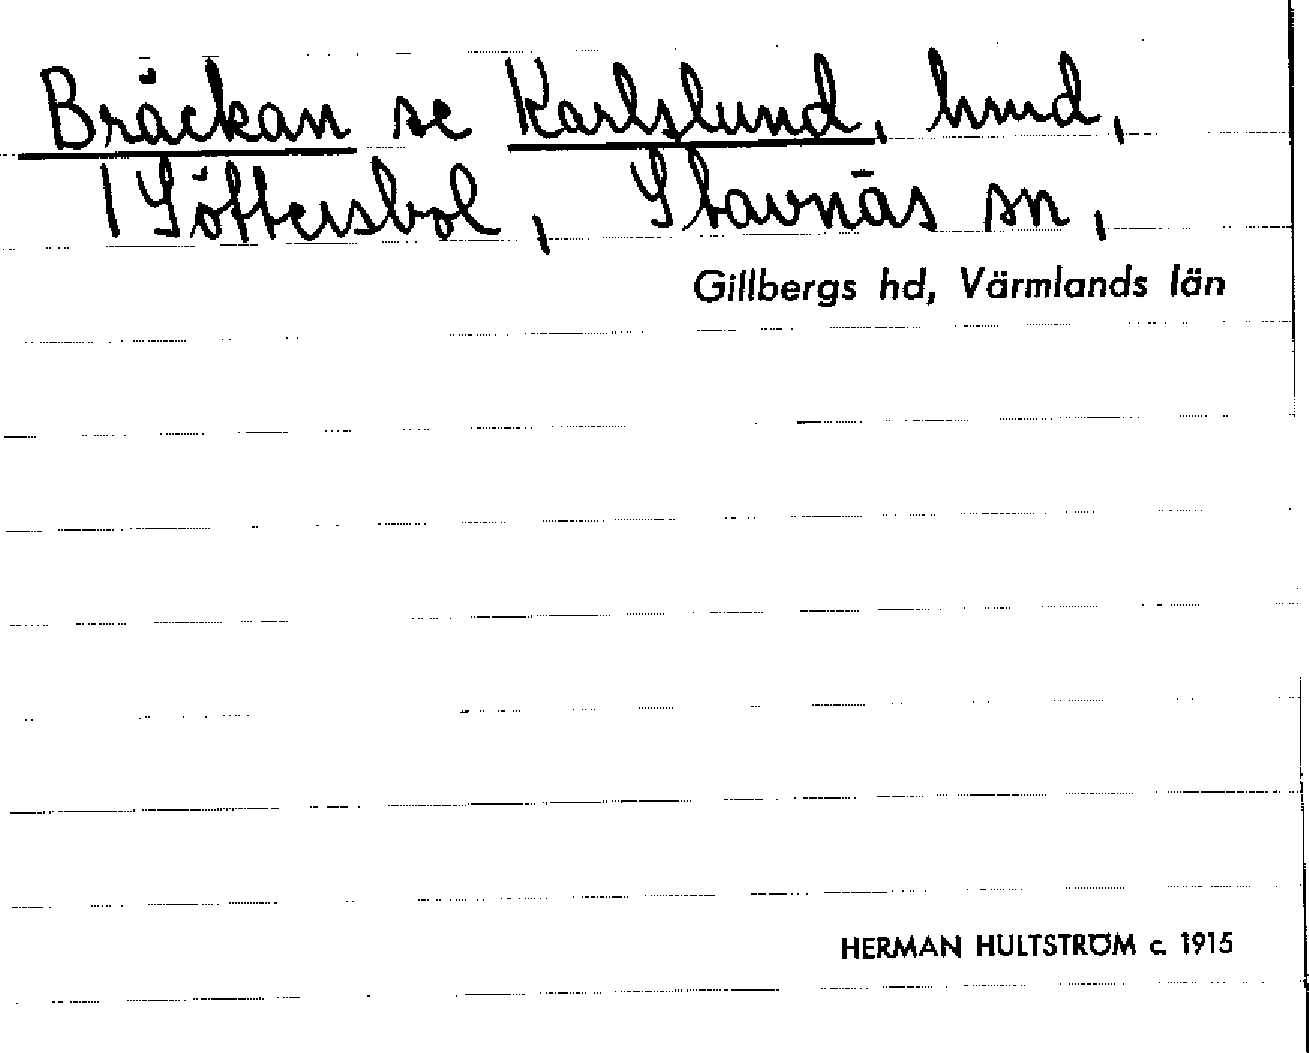 Bräckan se Karlslund, hmd,
1 Söttersbol, Stavnäs sn,
Gillbergs hd, Värmlands län
HERMAN HULTSTRÖM c. 1915